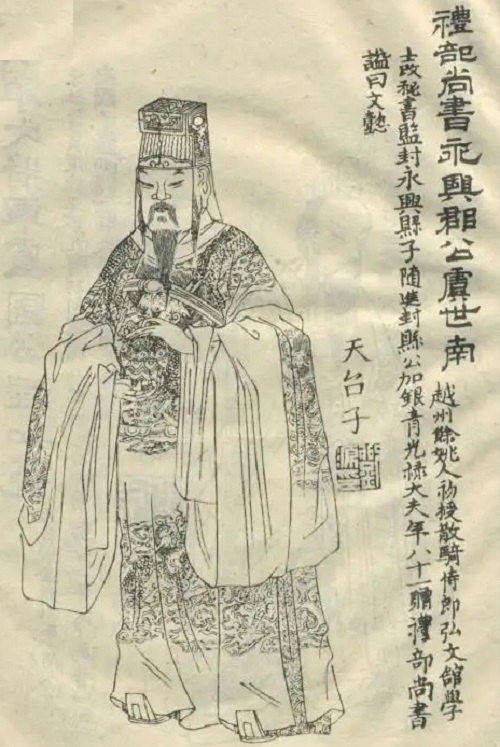 禮部尚書永興郡公虞世南
越州餘姚人初授散騎侍郎弘文舘學
士改秘書監封永興縣子隨進封縣公加銀青光祿大夫年八十一贈禮部尚書
諡曰文懿
天台子